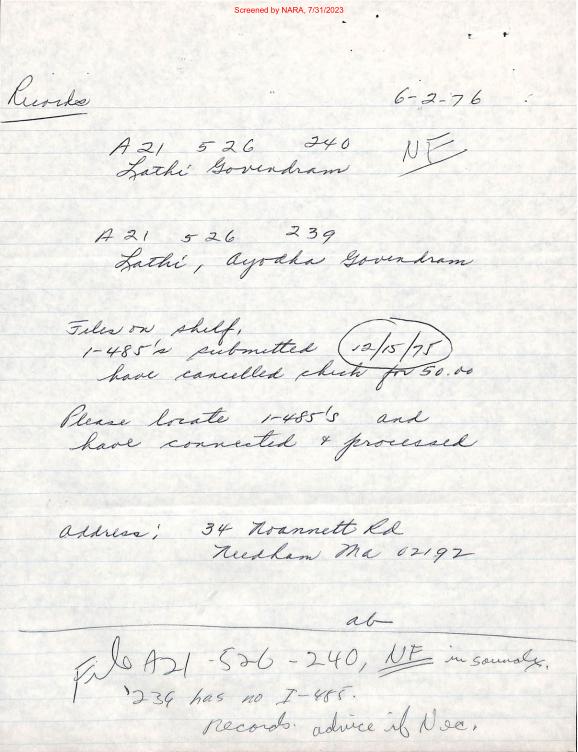 Screened by NARA, 7/31/2023
Records
6-2-76
A21 526 240 NF
Lathi Govendram
A21 526 239
Lathi, Ayodha Govendram
Files on shelf.
1-485's submitted 12/15/75
have cancelled check for 50.00
Please locate 1-485's and
have connected & processed
address: 34 Noannett Rd
Needham Ma 02192
ab
File A21-526-240, NF in soundx.
'239 has no I-485.
Records. advice if Nec.